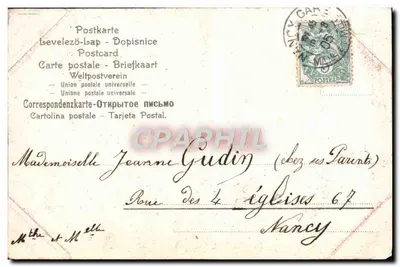 Postkarte
Levelező-Lap - Dopisnice
Postcard
Carte postale - Briefkaart
Weltpostverein
Union postale universelle
Unione postale universale
Correspondenzkarte-Открытое письмо
Cartolina postale - Tarjeta Postal.
CPAPHIL
NANCY GARE
05
POSTES
Mademoiselle Jeanne Gudin (chez ses Parents)
Rue des 4 églises 67
Nancy
Mthe et Melle